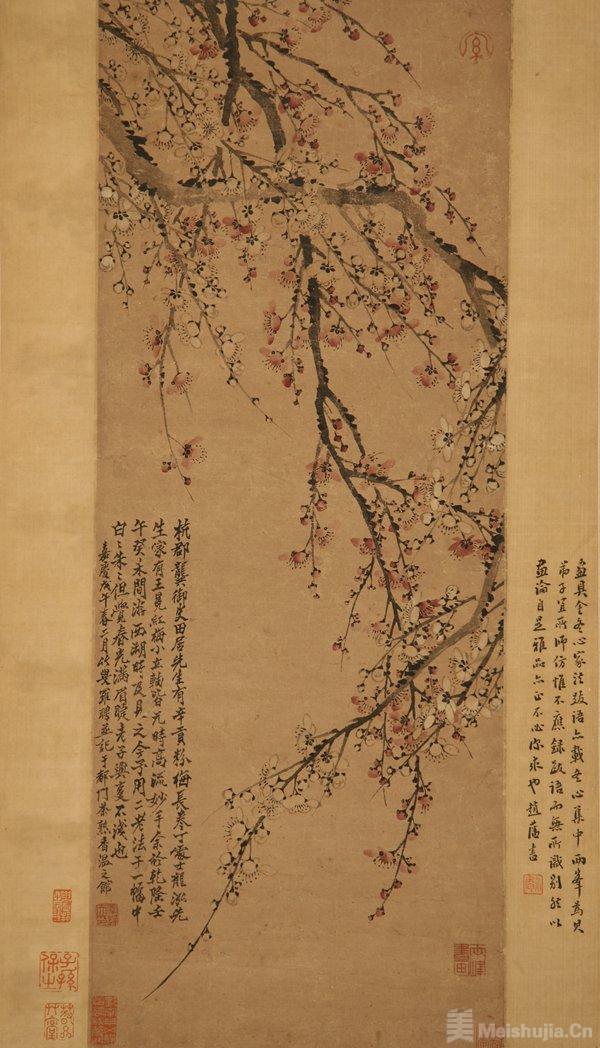 杭郡龔御史田居先生有辛貢粉梅長卷丁處士龍泓先
生家有王冕紅梅小立軸皆元時高流妙手余於乾隆壬
午癸未間游西湖時及見之今予用二老法于一幅中
白白朱朱但覺春光滿眉睫老子興复不淺也
嘉慶戊午春二月竹叟羅聘並記于都門茶熟香温之館
畫具全冬心家法跋語亦載冬心集中兩峯為具
弟子宜所師仿惟不應錄跋語而無所識別然以
畫論自是雅品亦正不必深求也 趙藩書
子孫
保之
兩峯
畫田
美 Meishujia.Cn